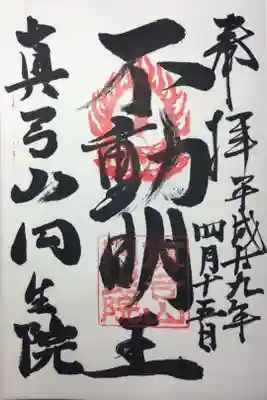 奉拝 平成廿九年
四月十五日
不動明王
真弓山円生院